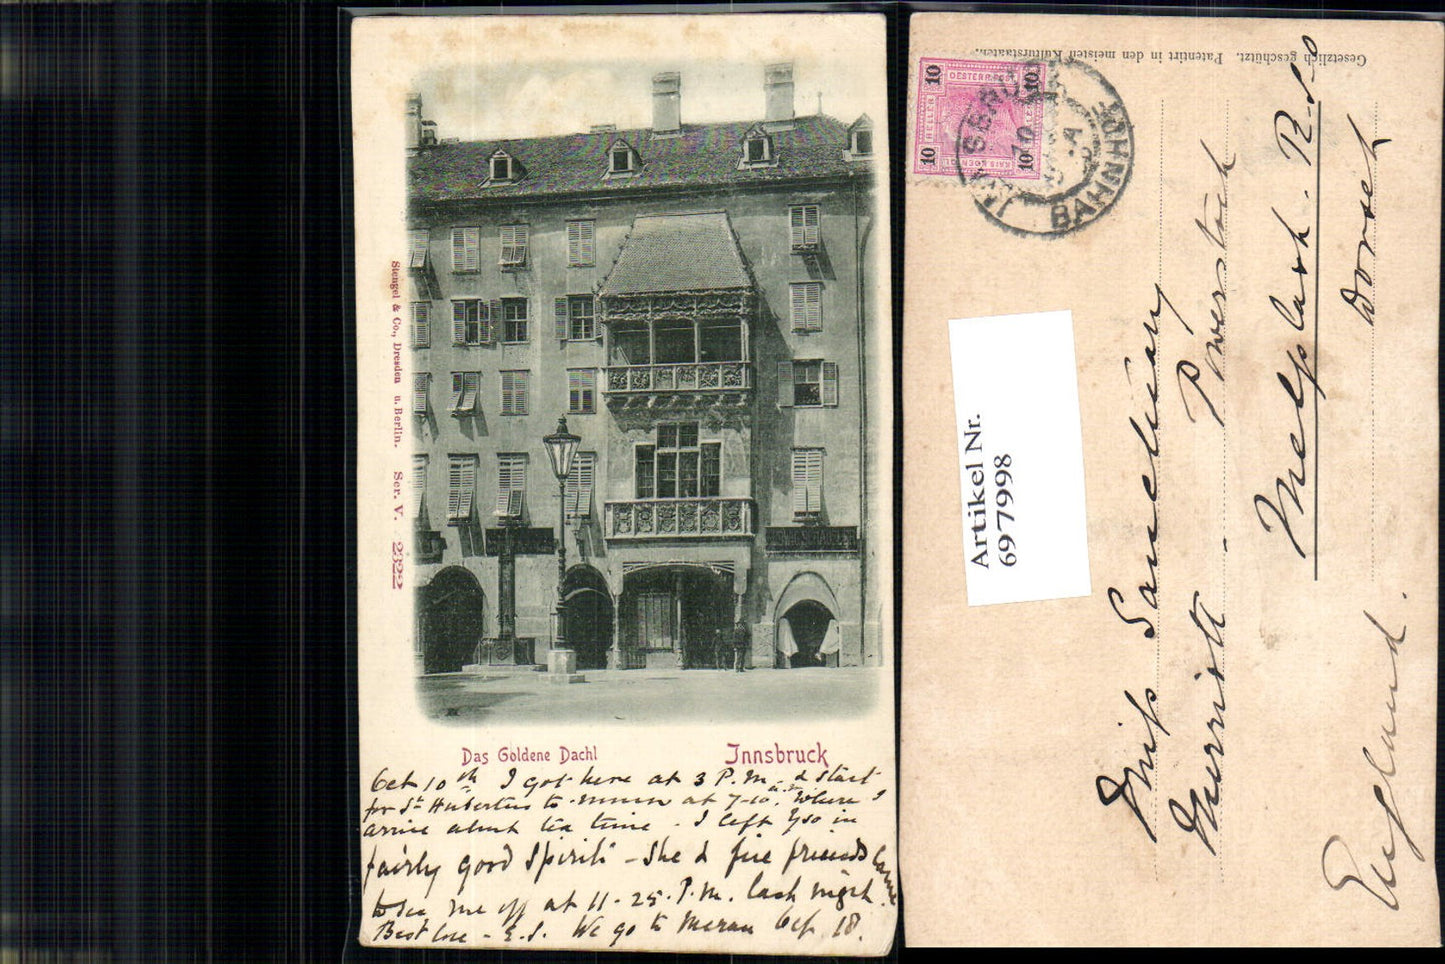 Stengel & Co., Dresden u. Berlin. Ser. V. 2322
Das Goldene Dachl
Innsbruck
Oct 10th I got here at 3 P.M. & start
for St Hubertus to-morrow at 7-10 a.m. Where I
arrive about tea time. I left in
fairly good Spirits - She & five friends came
to see me off at 11-25. P.M. last night.
Best love - E.S. We go to Meran 18.
Gesetzlich geschützt. Patentirt in den meisten Kulturstaaten.
10 10
OESTERR.
HELLER
10 10
BAHNHOF
Artikel Nr.
697998
Miss
Merriott - Powerstock
Melplash. R.S.O
Dorset
England.